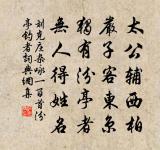 太公辅西柏
严子客东京
独有汾亭者
无人得姓名
刘克庄杂咏一百首汾
亭钓者词典网集